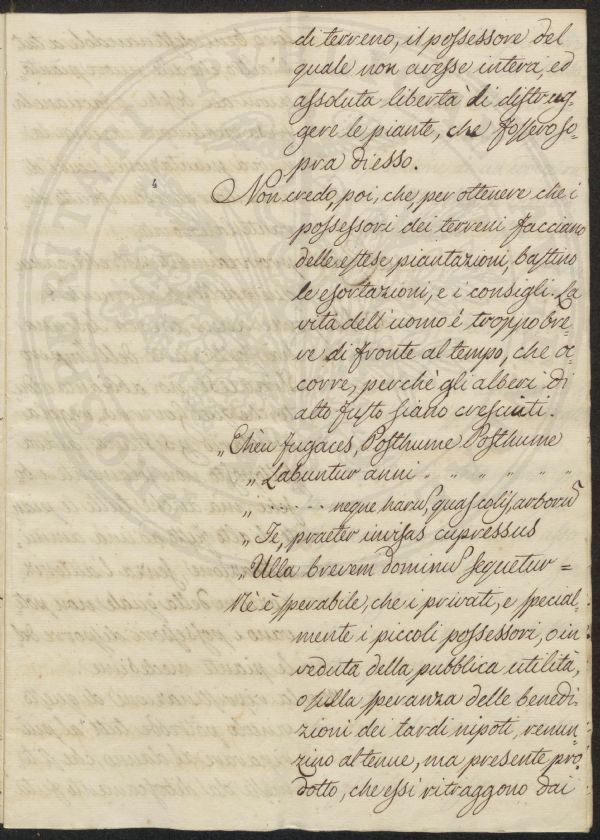 di terreno, il possessore del
quale non avesse intera, ed
assoluta libertà di distrug-
gere le piante, che fossero so-
pra di esso.
Non credo, poi, che, per ottenere che i
possessori dei terreni facciano
delle estese piantazioni, bastino
le esortazioni, e i consigli. La
vita dell'uomo è troppo bre-
ve di fronte al tempo, che oc-
corre, perchè gli alberi di
alto fusto siano cresciuti.
„Eheu fugaces, Posthume Posthume
„Labuntur anni . „ „ „ „ „
„ . . . . . . neque harū, quas colis, arborū
„Te, praeter invisas cupressus
„Ulla brevem dominū sequetur =
Nè è sperabile, che i privati, e special-
mente i piccoli possessori, o in
veduta della pubblica utilità,
o sulla speranza delle benedi-
zioni dei tardi nipoti, renun-
zino al tenue, ma presente pro-
dotto, che essi ritraggono dai